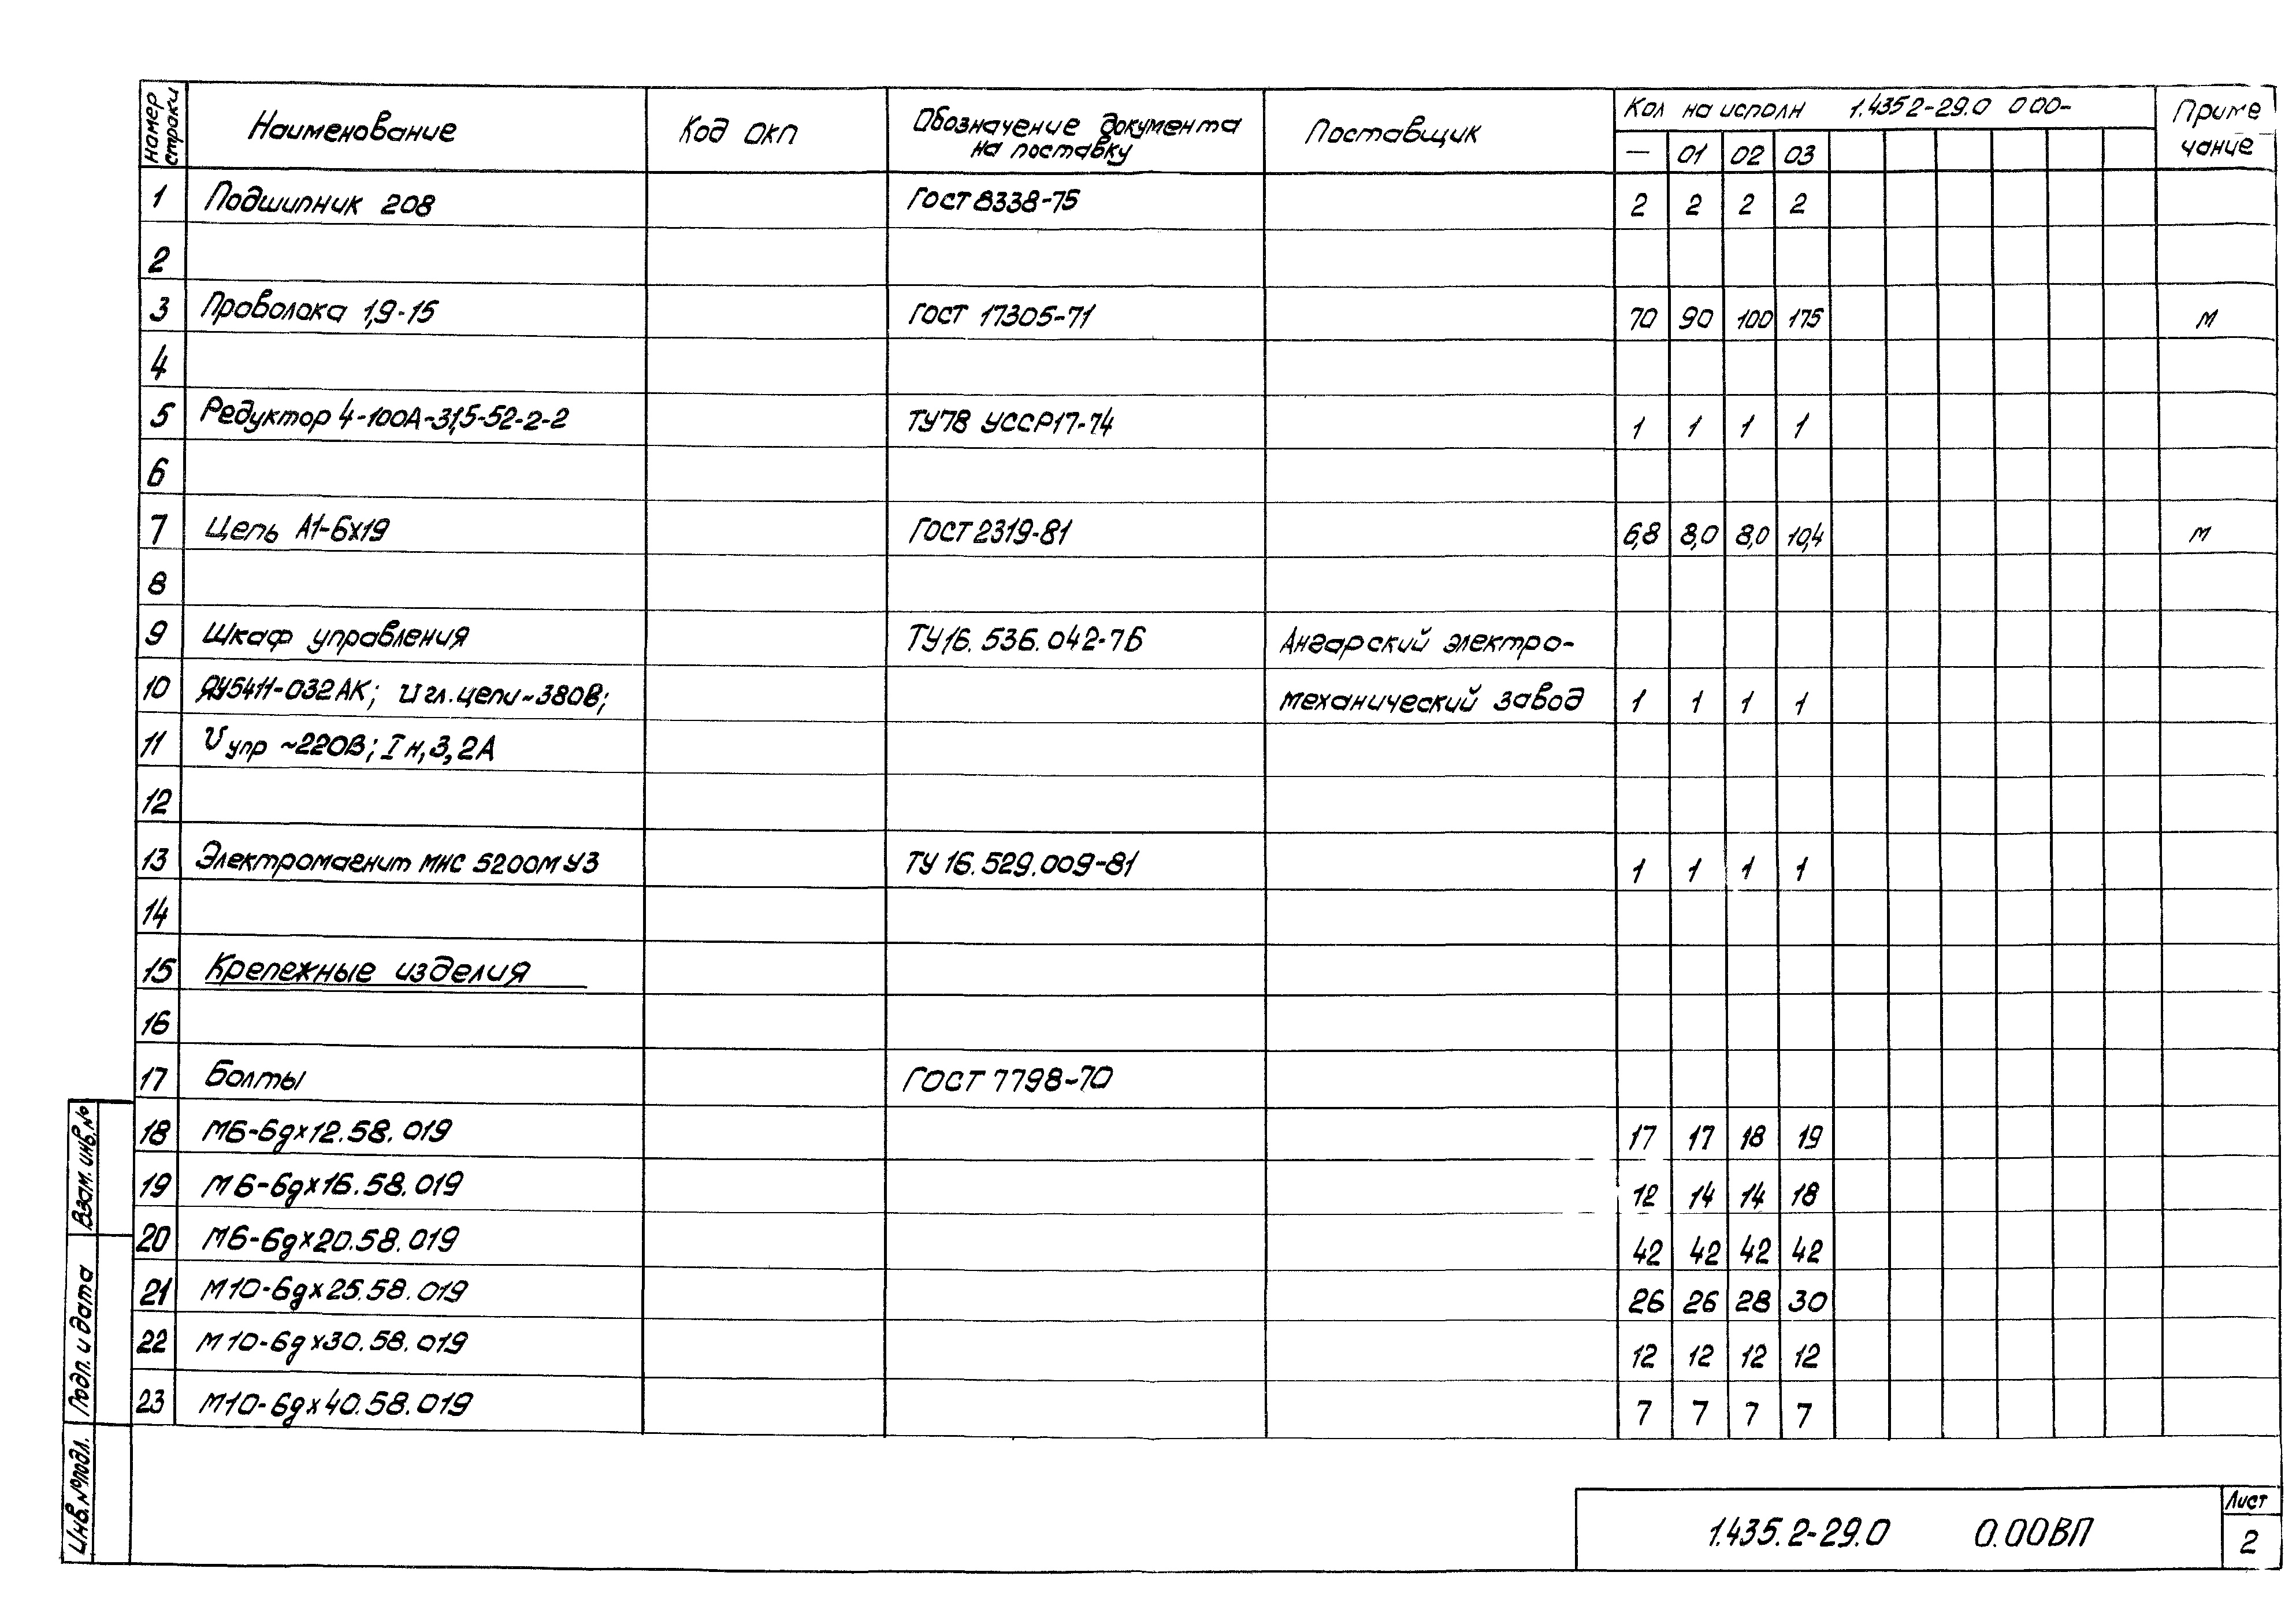 Номер строки Наименование Код ОКП Обозначение документа на поставку Поставщик Кол на исполн 1.435 2-29.0 0 00- Приме чание
— 01 02 03
1 Подшипник 208 ГОСТ 8338-75 2 2 2 2
2
3 Проволока 1,9-15 ГОСТ 17305-71 70 90 100 175 м
4
5 Редуктор Ч-100А-31,5-52-2-2 ТУ78 УССР17-74 1 1 1 1
6
7 Цепь А1-6х19 ГОСТ 2319-81 6,8 8,0 8,0 10,4 м
8
9 Шкаф управления ТУ16.536.042-76 Ангарский электро-
10 ЯУ5411-032АК; U гл.цепи~380В; механический завод 1 1 1 1
11 U упр ~220В; I н,3,2А
12
13 Электромагнит МИС 5200М У3 ТУ 16.529.009-81 1 1 1 1
14
15 Крепежные изделия
16
17 Болты ГОСТ 7798-70
18 М6-6gх12.58.019 17 17 18 19
19 М6-6gх16.58.019 12 14 14 18
20 М6-6gх20.58.019 42 42 42 42
21 М10-6gх25.58.019 26 26 28 30
22 М10-6gх30.58.019 12 12 12 12
23 М10-6gх40.58.019 7 7 7 7
Взам. инв.№
Подп. и дата
Инв.№подл.
1.435.2-29.0 0.00ВП
Лист
2